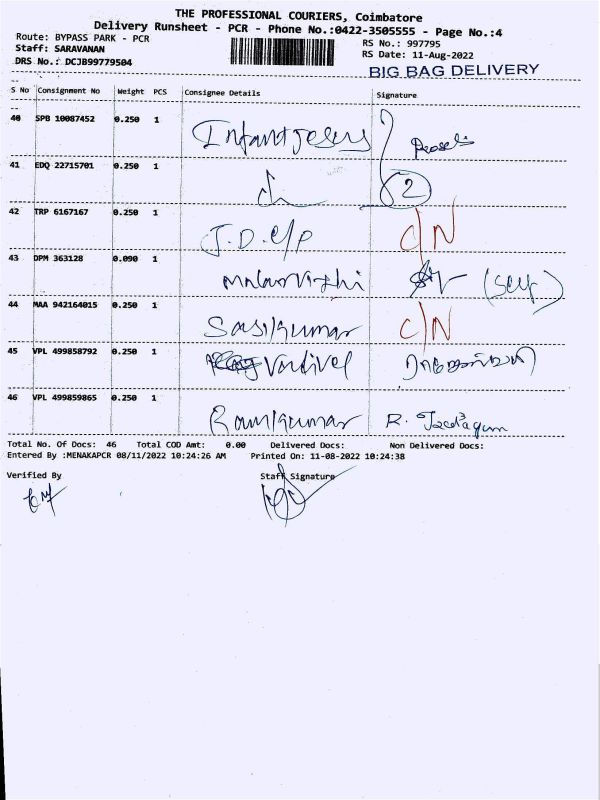 THE PROFESSIONAL COURIERS, Coimbatore
Delivery Runsheet - PCR - Phone No.:0422-3505555 - Page No.:4
Route: BYPASS PARK - PCR
RS No.: 997795
Staff: SARAVANAN
RS Date: 11-Aug-2022
DRS No.: DCJB99779504
BIG BAG DELIVERY
S No Consignment No Weight PCS Consignee Details Signature
40 SPB 10087452 0.250 1 Infantjesus
41 EDQ 22715701 0.250 1 2
42 TRP 6167167 0.250 1 J.D. C/N
43 DPM 363128 0.090 1
44 MAA 942164015 0.250 1 Sasikumar C/N
45 VPL 499858792 0.250 1 Vadivel
46 VPL 499859865 0.250 1 Ramkumar R.
Total No. Of Docs: 46 Total COD Amt: 0.00 Delivered Docs: Non Delivered Docs:
Entered By :MENAKAPCR 08/11/2022 10:24:26 AM Printed On: 11-08-2022 10:24:38
Verified By Staff Signature